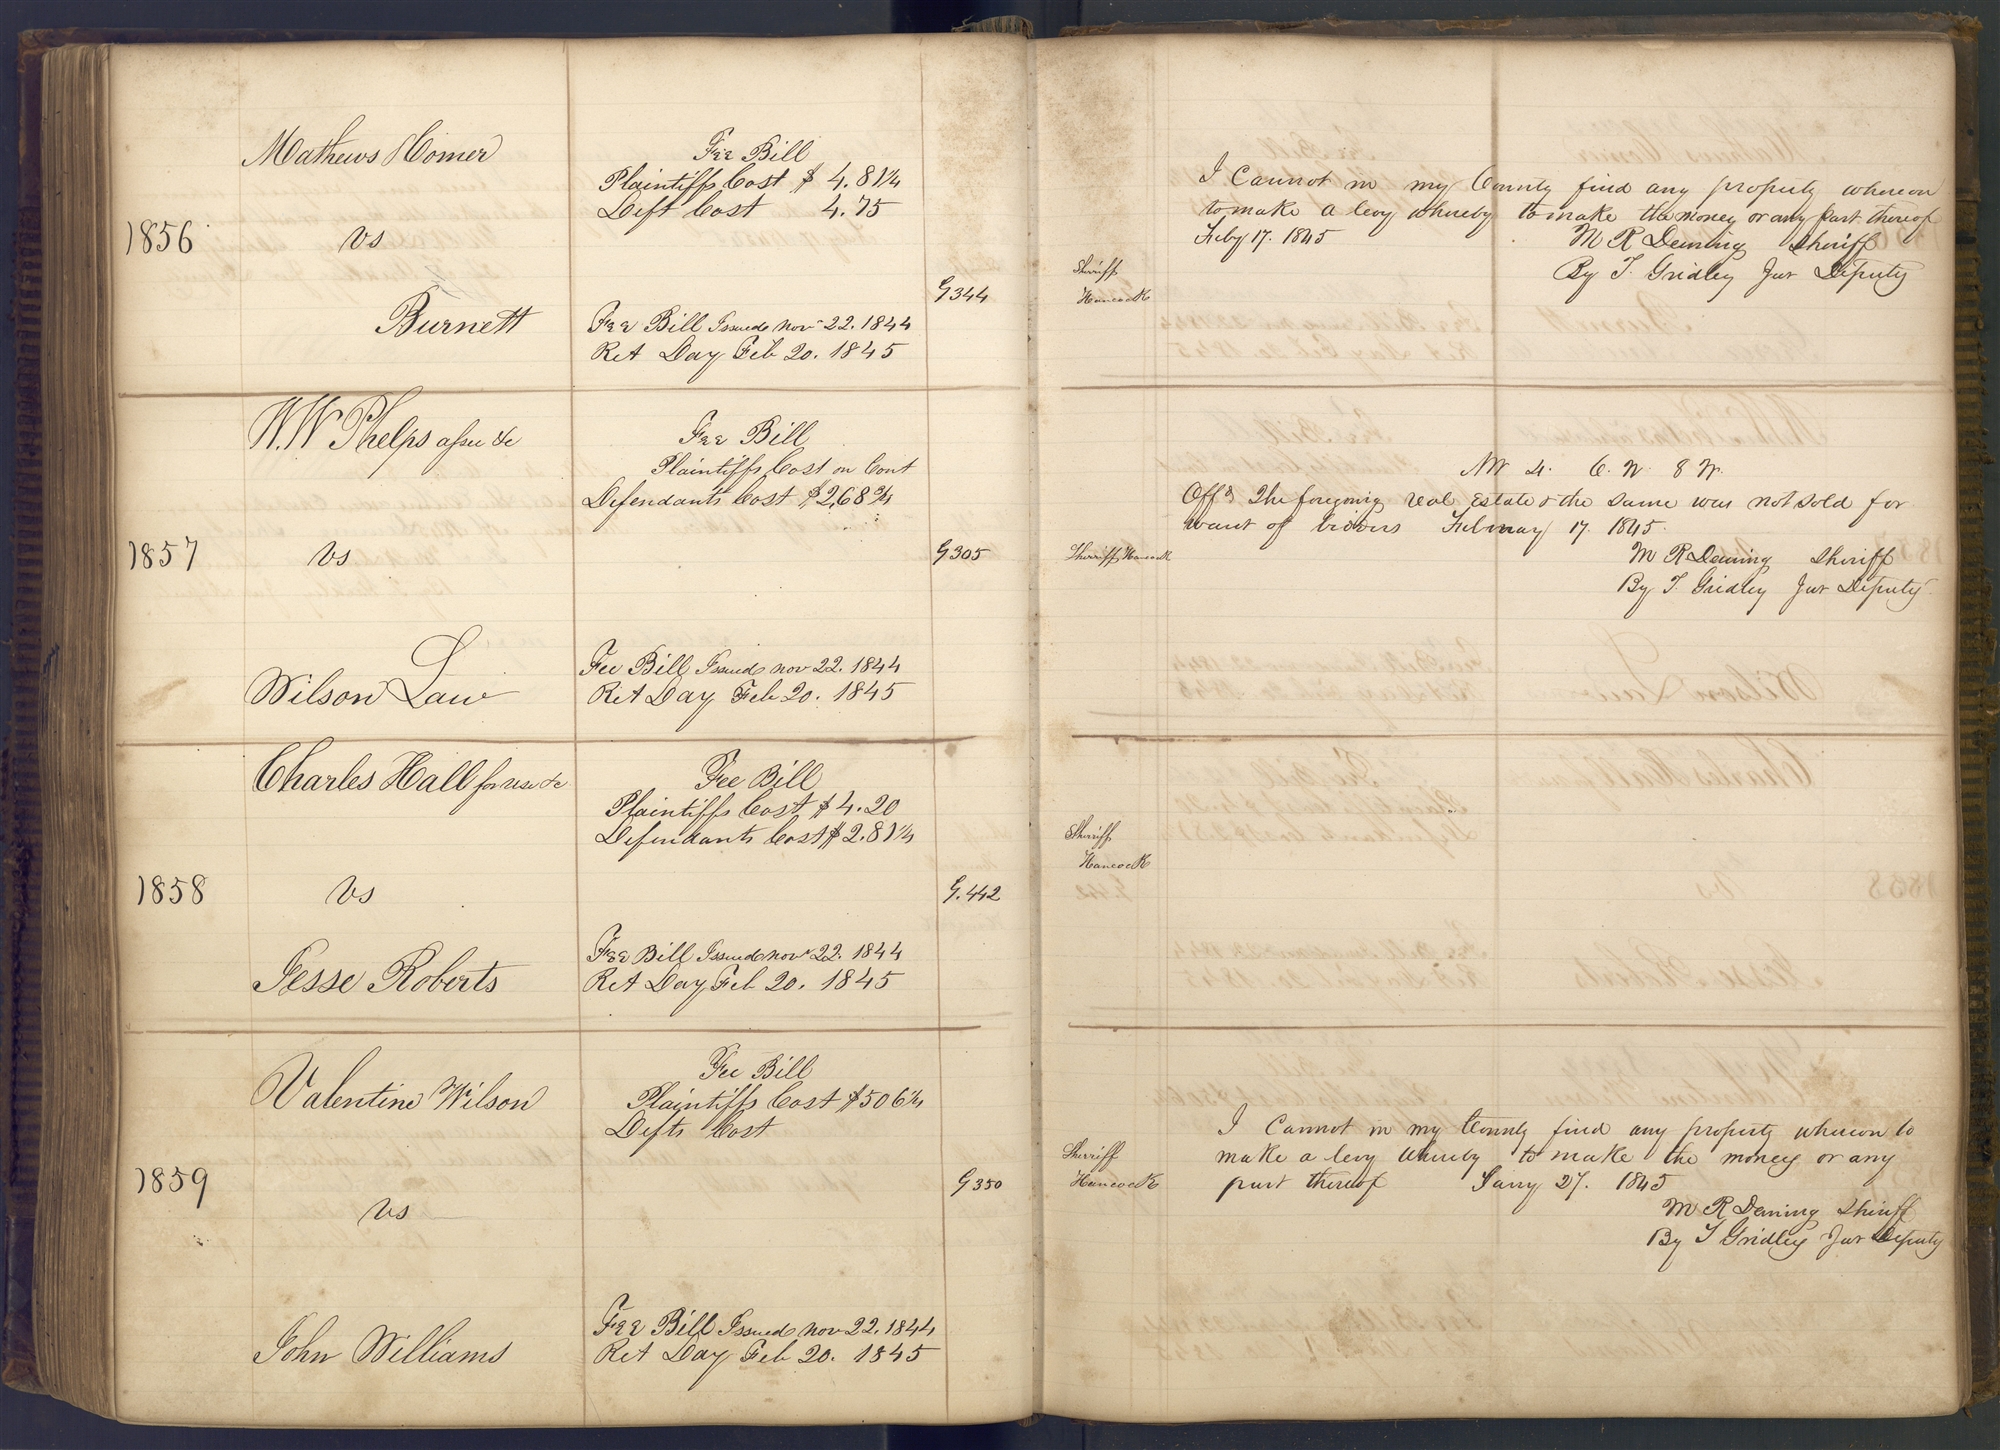 Mathews Homer
1856
vs
Burnett
Fee Bill
Plaintiffs Cost $ 4.81¼
Deft Cost 4.75
Fee Bill Issued Nov 22. 1844
Ret Day Feb 20. 1845
G344
Sheriff
Hancock
I Cannot in my County find any property whereon
to make a levy whereby to make the money or any part thereof
Feby 17. 1845
M R Deming Sheriff
By T. Gridley Jur Deputy
W. W Phelps assee &c
1857
vs
Wilson Law
Fee Bill
Plaintiffs Cost on Cont
Defendants Cost $2.68¾
Fee Bill Issued Nov 22. 1844
Ret Day Feb 20. 1845
G305
Sherriff Hancock
NW 4. 6. N. 8 W.
Offd The foregoing real Estate & the same was not sold for
want of bidders February 17. 1845.
M R Deming Sheriff
By T. Gridley Jur Deputy
Charles Hall for use &c
1858
vs
Jesse Roberts
Fee Bill
Plaintiffs Cost $4.20
Defendants Cost $2.81¼
Fee Bill Issued Nov 22. 1844
Ret Day Feb 20. 1845
G.442
Sheriff
Hancock
Valentine Wilson
1859
vs
John Williams
Fee Bill
Plaintiffs Cost $506¼
Defts Cost
Fee Bill Issued Nov 22. 1844
Ret Day Feb 20. 1845
G350
Sherriff
Hancock
I Cannot in my County find any property whereon to
make a levy whereby to make the money or any
part thereof Jany 27. 1845
M R Deming Sheriff
By T Gridley Jur Deputy